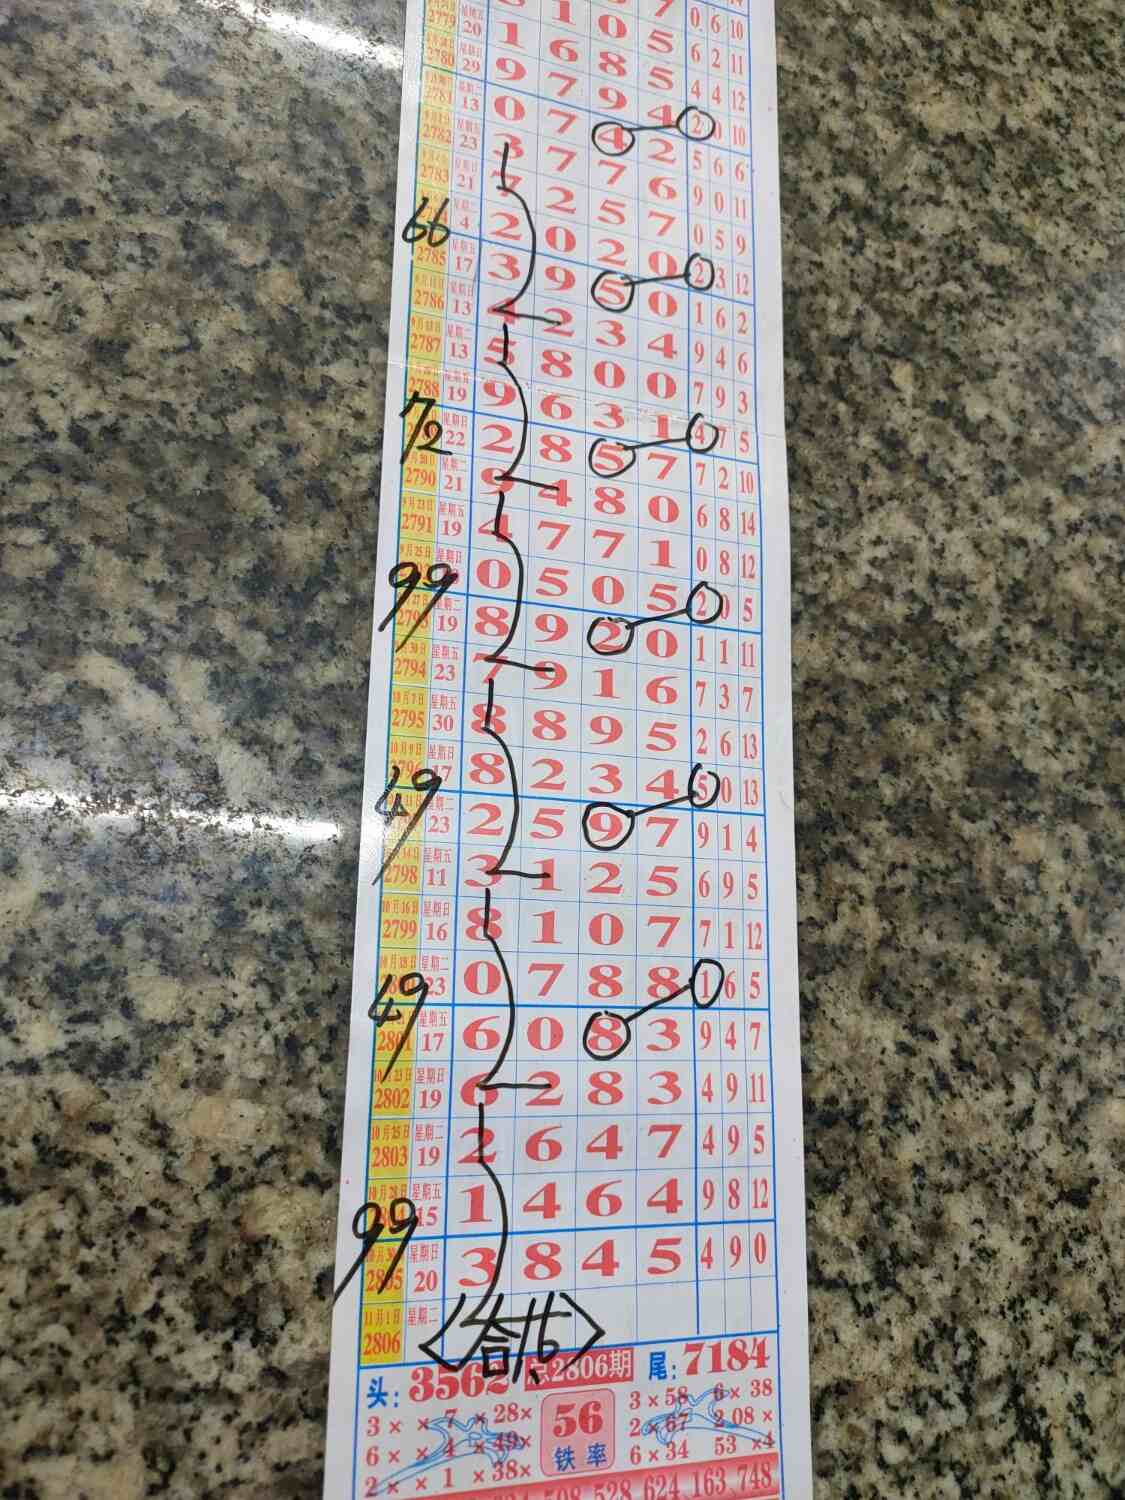 2779 星期五 20 1 0 7 0 6 10
2780 星期日 29 1 6 8 5 6 2 11
2781 星期二 13 9 7 9 5 4 4 12
2782 星期五 23 0 7 4 4 2 0 10
2783 星期日 21 3 7 7 2 5 6 6
星期二 4 7 2 5 6 9 0 11
66
2785 星期五 17 2 0 2 7 0 5 9
2786 星期日 13 3 9 5 0 2 3 12
2787 星期二 13 4 2 3 0 1 6 2
2788 星期五 19 5 8 0 4 9 4 6
星期日 22 9 6 3 0 7 9 3
72
2790 星期二 21 2 8 5 1 4 7 5
9月23日 2791 星期五 19 9 4 8 7 7 2 10
9月25日 星期日 4 7 7 0 6 8 14
99
19 星期二 0 5 0 1 0 8 12
2794 星期五 23 8 9 2 5 2 0 5
10月7日 2795 星期五 30 7 9 1 0 1 1 11
10月9日 星期日 17 8 8 9 6 7 3 7
49
星期二 23 8 2 3 5 2 6 13
2798 星期五 11 2 5 9 4 5 0 13
10月16日 2799 星期日 16 3 1 2 7 9 1 4
10月18日 星期二 23 8 1 0 5 6 9 5
49
2801 星期五 17 0 7 8 7 7 1 12
10月23日 2802 星期日 19 6 0 8 8 1 6 5
10月25日 2803 星期二 19 6 2 8 3 9 4 7
10月28日 星期五 15 2 6 4 3 4 9 11
99
2805 星期日 20 1 4 6 7 4 9 5
3 8 4 4 9 8 12
5 4 9 0
11月1日 2806 星期二
合共6
头: 3562 总2806期 尾: 7184
3 × × 7 × 28× 56 3 × 58 6 × 38
6 × × 4 × 49× 铁率 2 × 67 2 08 ×
2 × × 1 × 38× 6 × 34 53 ×4
508 528 624 163 748